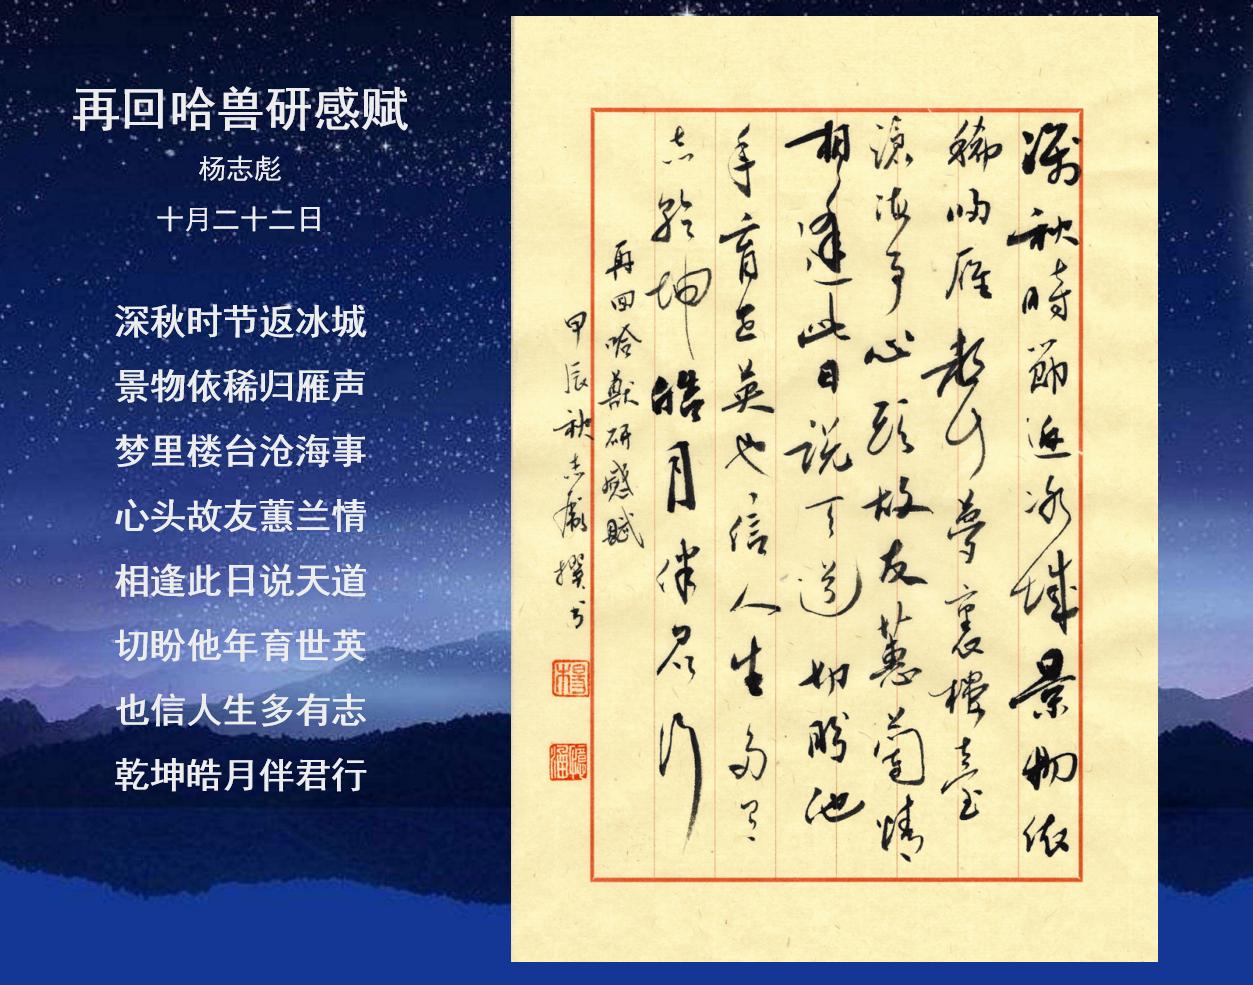 再回哈兽研感赋
杨志彪
十月二十二日
深秋时节返冰城
景物依稀归雁声
梦里楼台沧海事
心头故友蕙兰情
相逢此日说天道
切盼他年育世英
也信人生多有志
乾坤皓月伴君行
深秋時節返冰城景物依
稀归雁声 夢裏樓臺
滄海事心头故友蕙蘭情
相逢此日说天道切盼他
年育世英也信人生多有
志乾坤皓月伴君行
再回哈獸研感赋
甲辰秋志彪撰书